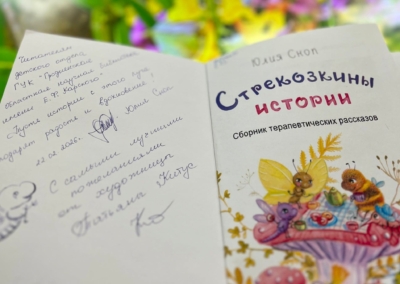 Читателям
детского отдела
ГУК "Гродненская
областная научная библиотека
имени Е.Ф. Карского"
Пусть истории с этого луга
подарят радость и вдохновение!
Юлиз Скоп
С самыми лучшими
пожеланиями
от художницы
Татьяна Китус
Юлиз Скоп
СТРЕКОЗКИНЫ
ИСТОРИИ
Сборник терапевтических рассказов